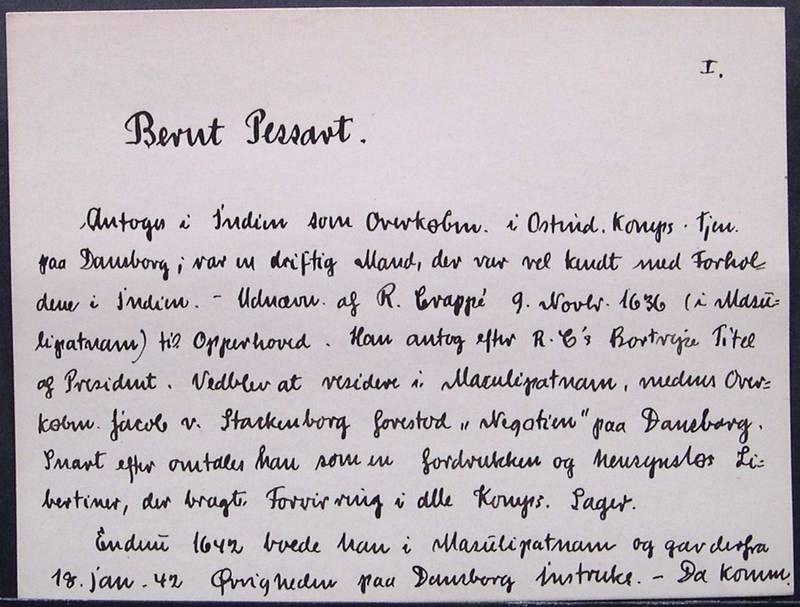 I.
Bernt Pessart.
Antoges i Indien som Overkøbm. i Ostind. Komps. Tjen.
paa Dansborg; var en driftig Mand, der var vel kendt med Forhol-
dene i Indien. - Udnævn. af R. Crappé 9. Novbr. 1636 (i Masū-
lipatnam) til Opperhoved. Han antog efter R. C's Bortrejse Titel
af President. Vedblev at residere i Masulipatnam, medens Over-
købm. Jacob v. Stackenborg forestod „Negotien" paa Dansborg.
Snart efter omtales han som en fordrukken og hensynsløs Li-
bertiner, der bragte Forvirring i alle Komps. Sager.
Endnū 1642 boede han i Masūlipatnam og gav derfra
18. jan. 42 Øvrigheden paa Dansborg Instruks. - Da Komm.